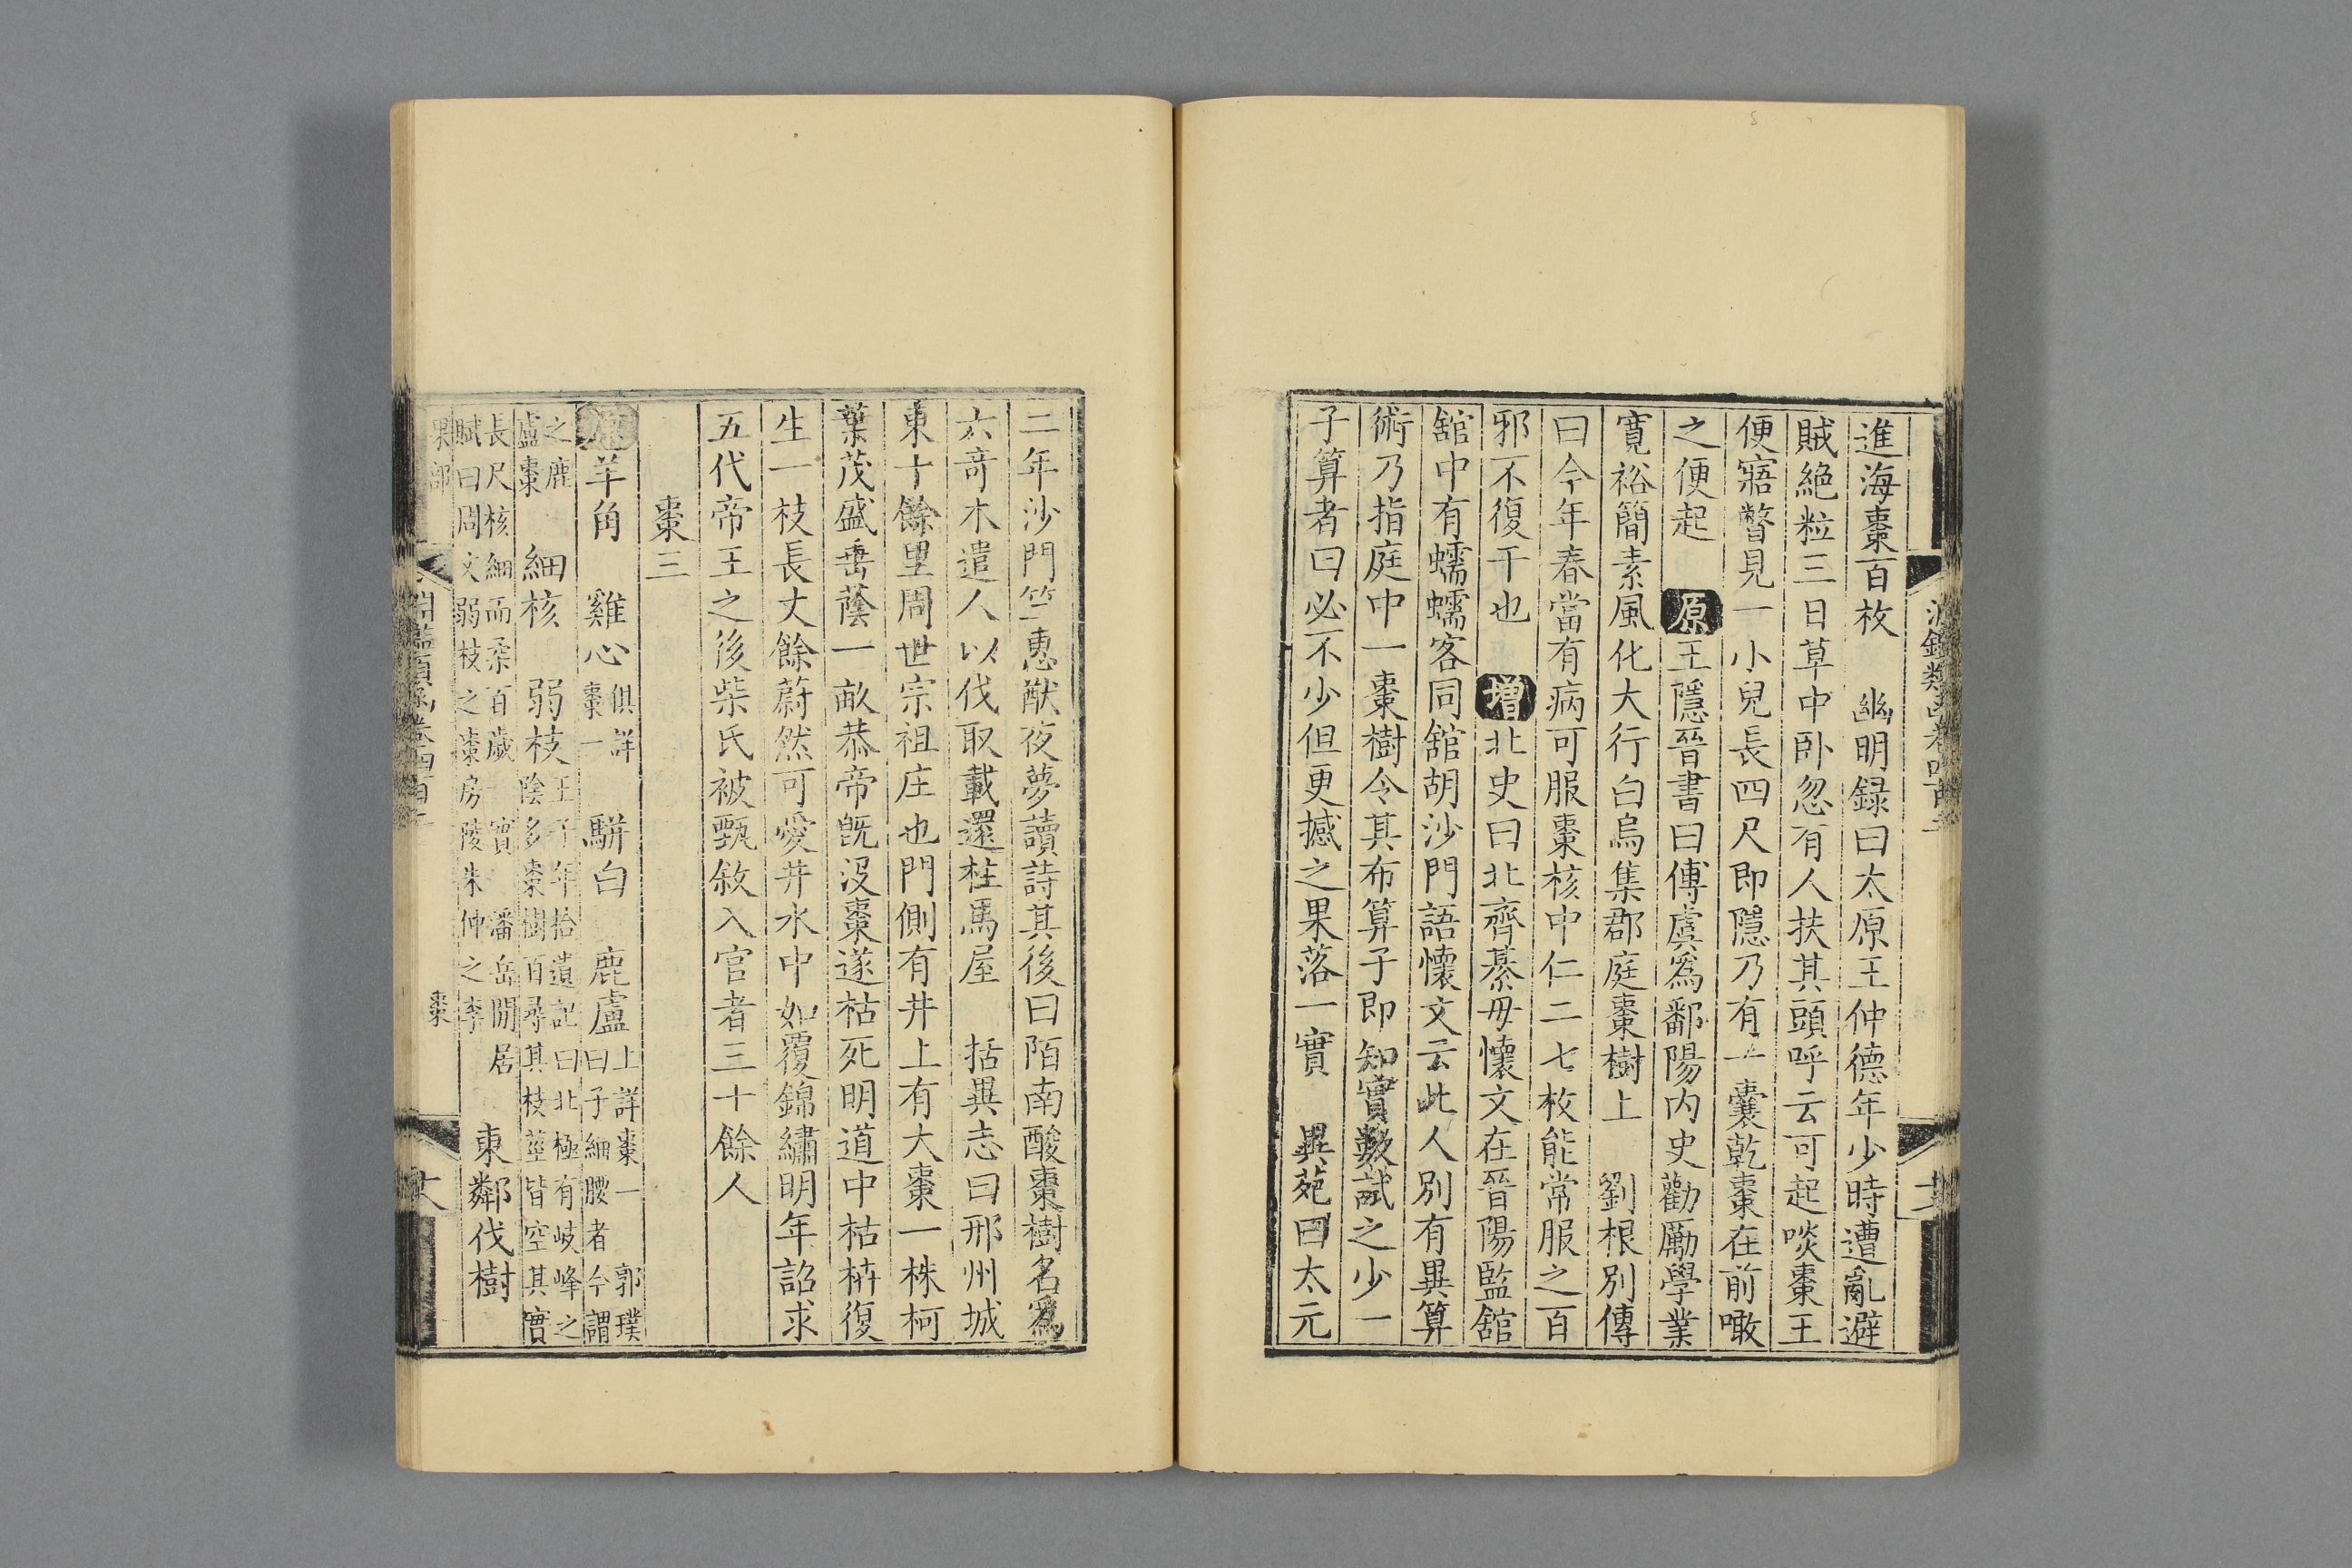 進海棗百枚　幽明録曰太原王仲德年少時遭亂避
賊絶粒三日草中卧忽有人扶其頭呼云可起啖棗王
便寤瞥見一小兒長四尺即隱乃有一囊乾棗在前噉
之便起　原王隱晉書曰傅虞爲鄱陽内史勸厲學業
寬裕簡素風化大行白烏集郡庭棗樹上　劉根別傳
曰今年春當有病可服棗核中仁二七枚能常服之百
邪不復干也　增北史曰北齊綦毋懷文在晉陽監舘
舘中有蠕蠕客同舘胡沙門語懷文云此人別有異算
術乃指庭中一棗樹令其布算子即知實數試之少一
子算者曰必不少但更撼之果落一實　異苑曰太元
二年沙門竺惠猷夜夢讀詩其後曰陌南酸棗樹名爲
六奇木遣人以伐取載還柱馬屋　括異志曰邢州城
東十餘里周世宗祖庄也門側有井上有大棗一株柯
葉茂盛垂蔭一畝恭帝旣沒棗遂枯死明道中枯栟復
生一枝長丈餘蔚然可愛井水中如覆錦繡明年詔求
五代帝王之後柴氏被甄敘入官者三十餘人
棗三
原羊角　雞心俱詳棗一　駢白　鹿盧上詳棗一　郭璞曰子細腰者今謂
之鹿盧棗　細核　弱枝王子年拾遺記曰北極有岐峰之陰多棗樹百尋其枝莖皆空其實
長尺核細而柔百歲一實　潘岳閒居賦曰周文弱枝之棗房陵朱仲之李　東鄰伐樹
果部　淵鑑類函卷四百　棗